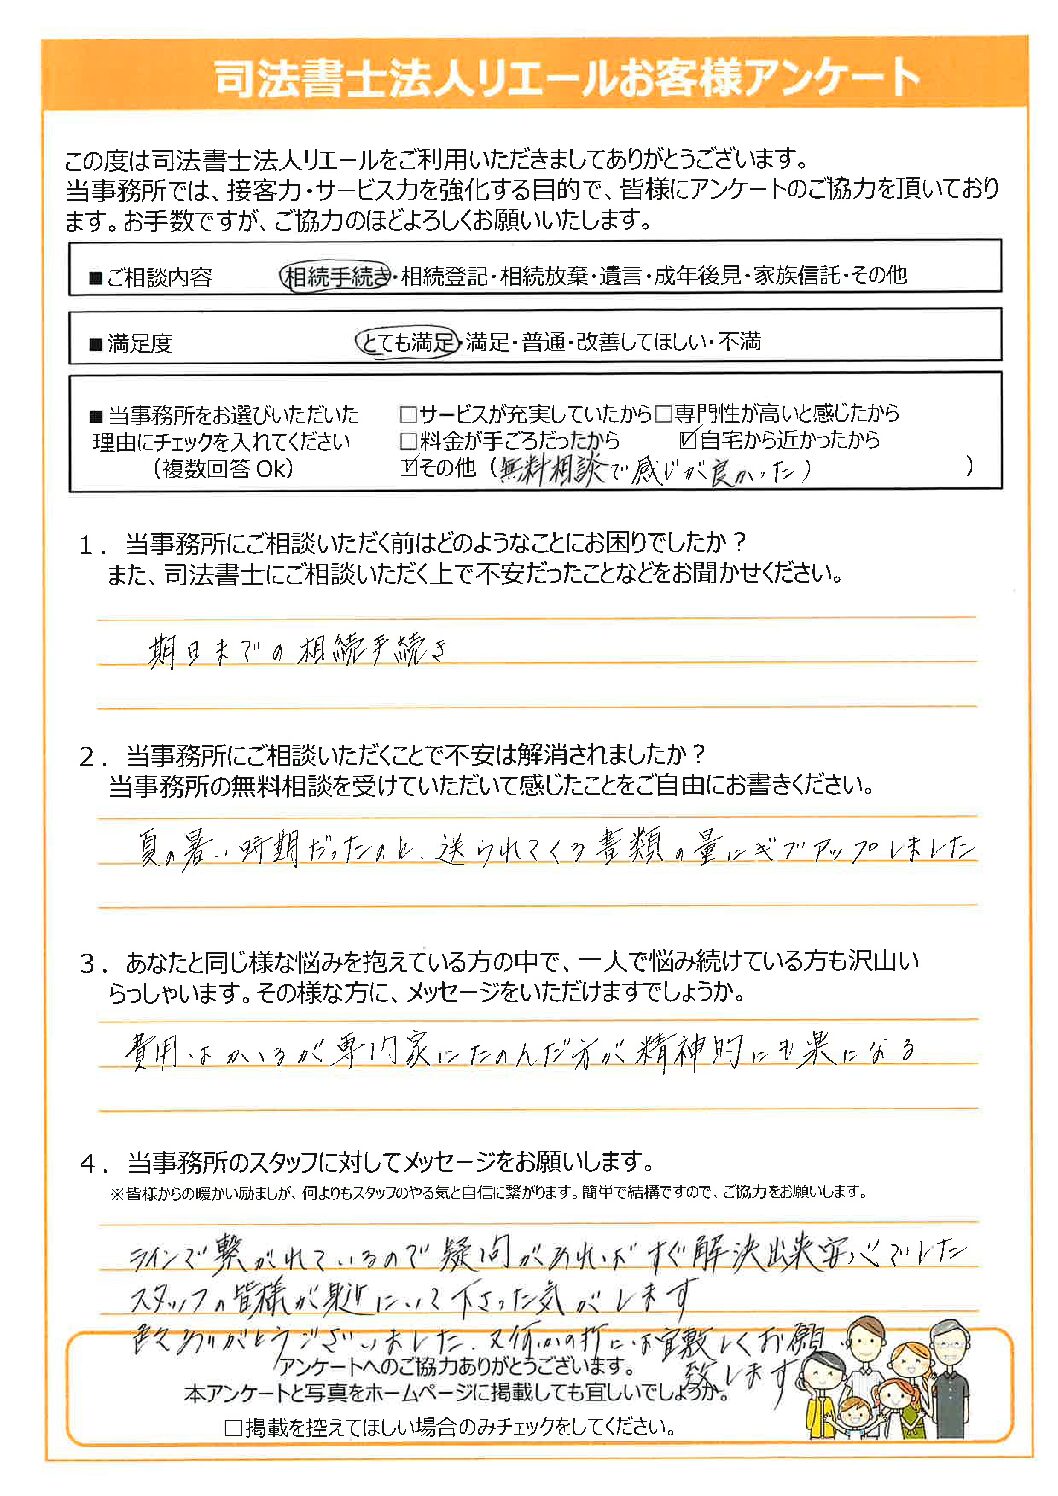 司法書士法人リエールお客様アンケート
この度は司法書士法人リエールをご利用いただきましてありがとうございます。
当事務所では、接客力・サービス力を強化する目的で、皆様にアンケートのご協力を頂いており
ます。お手数ですが、ご協力のほどよろしくお願いいたします。
■ご相談内容 相続手続き・相続登記・相続放棄・遺言・成年後見・家族信託・その他
■満足度 とても満足・満足・普通・改善してほしい・不満
■当事務所をお選びいただいた □サービスが充実していたから□専門性が高いと感じたから
理由にチェックを入れてください □料金が手ごろだったから ☑自宅から近かったから
（複数回答 OK） ☑その他（無料相談で感じが良かった） ）
１．当事務所にご相談いただく前はどのようなことにお困りでしたか？
また、司法書士にご相談いただく上で不安だったことなどをお聞かせください。
期日までの相続手続き
２．当事務所にご相談いただくことで不安は解消されましたか？
当事務所の無料相談を受けていただいて感じたことをご自由にお書きください。
夏の暑い時期だったのと、送られてくる書類の量にギブアップしました
３．あなたと同じ様な悩みを抱えている方の中で、一人で悩み続けている方も沢山い
らっしゃいます。その様な方に、メッセージをいただけますでしょうか。
費用はかかるが専門家にたのんだ方が精神的にも楽になる
４．当事務所のスタッフに対してメッセージをお願いします。
※皆様からの暖かい励ましが、何よりもスタッフのやる気と自信に繋がります。簡単で結構ですので、ご協力をお願いします。
ラインで繋がれているので疑問があればすぐ解決出来安心でした
スタッフの皆様が身近にいて下さった気がします
色々ありがとうございました。又何かの折には宜敷しくお願い
致します
アンケートへのご協力ありがとうございます。
本アンケートと写真をホームページに掲載しても宜しいでしょうか。
□掲載を控えてほしい場合のみチェックをしてください。